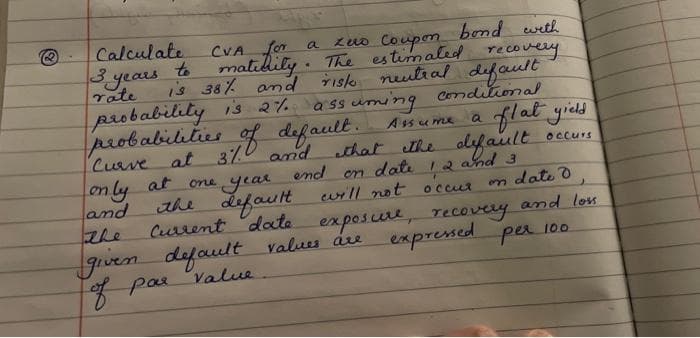 ② . Calculate CVA for a zero coupon bond with
3 years to maturity. The estimated recovery
rate is 38% and risk neutral default
probability is 2% assuming conditional
probabilities of default. Assume a flat yield
Curve at 3% and that the default occurs
only at one year end on date 1, 2 and 3
and the default will not occur on date 0,
the current date exposure, recovery and loss
given default values are expressed per 100
of par value.